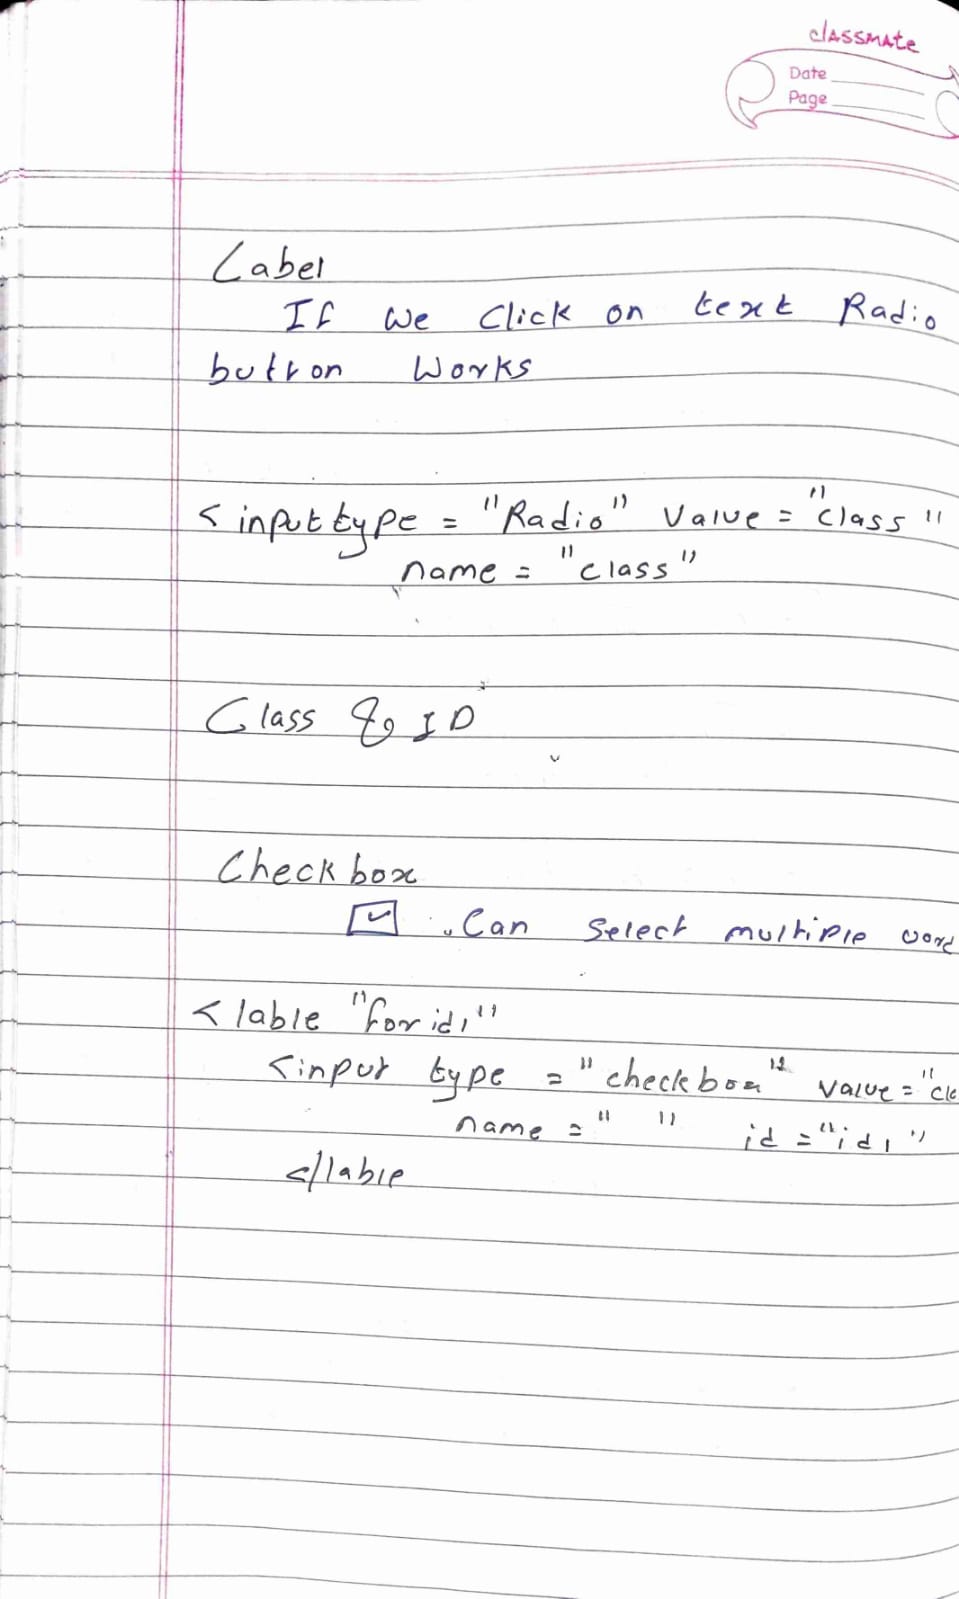 classmate
Date
Page
Label
If we click on text Radio
button Works
< input type = "Radio" Value = "class"
name = "class"
Class & ID
Checkbox
☑ . Can Select multiple
< lable "for id1"
<input type = "checkbox" value = "
name = " " id = "id1"
</lable